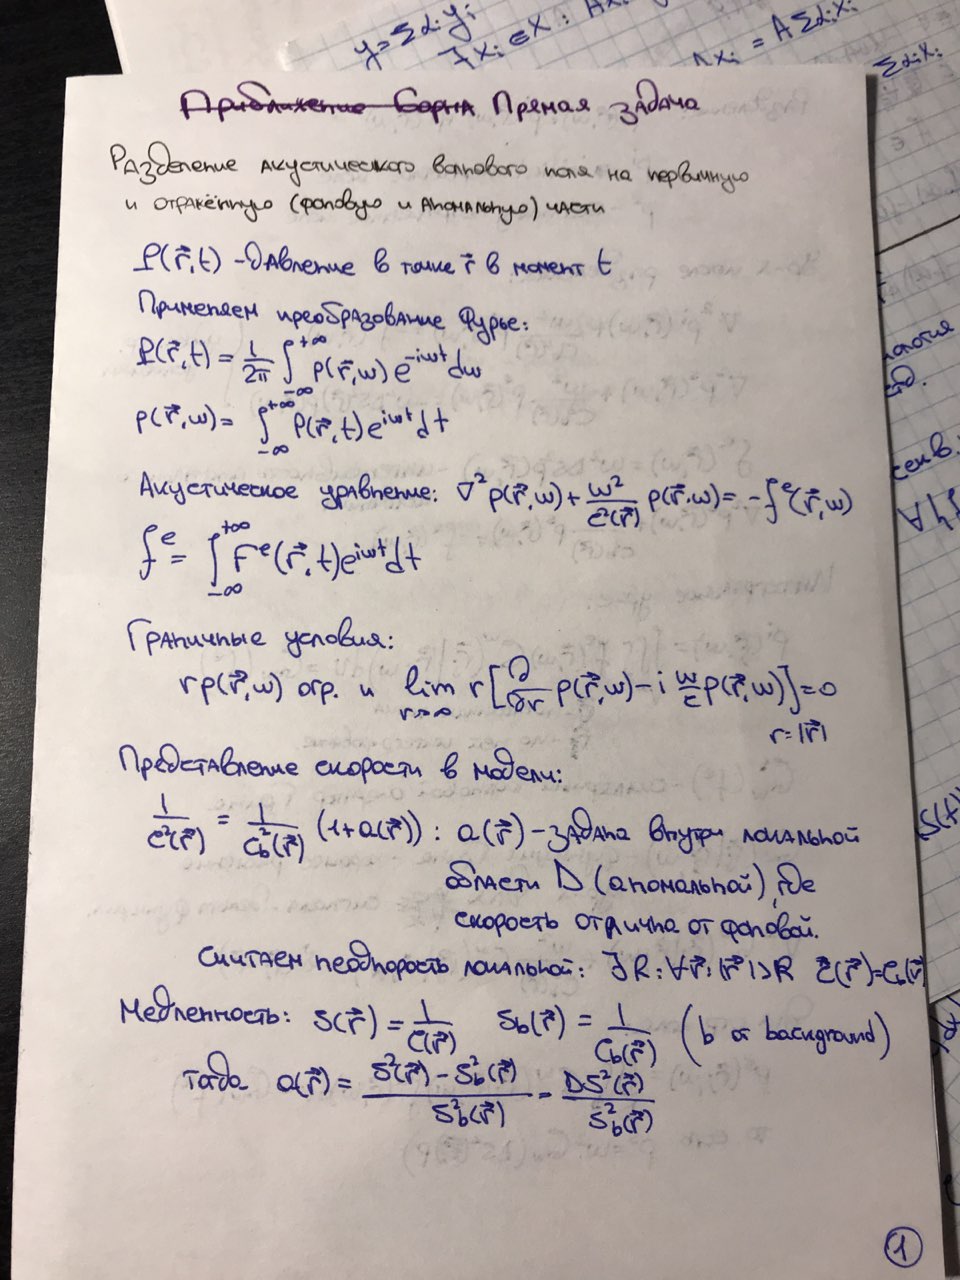 y = Σαᵢyᵢ
∃xᵢ ∈ X : Axᵢ
Axᵢ = AΣαᵢxᵢ
Σαᵢxᵢ
Приближение Борна Прямая задача
Разделение акустического волнового поля на первичную
и отражённую (фоновую и аномальную) части
P(r⃗,t) - давление в точке r⃗ в момент t
Применяем преобразование Фурье:
P(r⃗,t) = 1/2π ∫_{-∞}^{+∞} p(r⃗,ω) e^{-iωt} dω
p(r⃗,ω) = ∫_{-∞}^{+∞} P(r⃗,t) e^{iωt} dt
Акустическое уравнение: ∇² p(r⃗,ω) + ω²/c²(r⃗) p(r⃗,ω) = -f^e(r⃗,ω)
f^e = ∫_{-∞}^{+∞} F^e(r⃗,t) e^{iωt} dt
Граничные условия:
r p(r⃗,ω) огр. и lim_{r→∞} r[∂/∂r p(r⃗,ω) - i ω/c p(r⃗,ω)] = 0
r = |r⃗|
Представление скорости в модели:
1/c²(r⃗) = 1/c_b²(r⃗) (1+a(r⃗)) : a(r⃗) - задана внутри локальной
области D (аномальной), где
скорость отлична от фоновой.
Считаем неоднорость локальной: ∃R: ∀r⃗: |r⃗|>R c(r⃗)=c_b(r⃗
Медленность: S(r⃗) = 1/c(r⃗) S_b(r⃗) = 1/c_b(r⃗) (b от background)
тогда a(r⃗) = (S²(r⃗) - S_b²(r⃗))/S_b²(r⃗) = DS²(r⃗)/S_b²(r⃗)
1